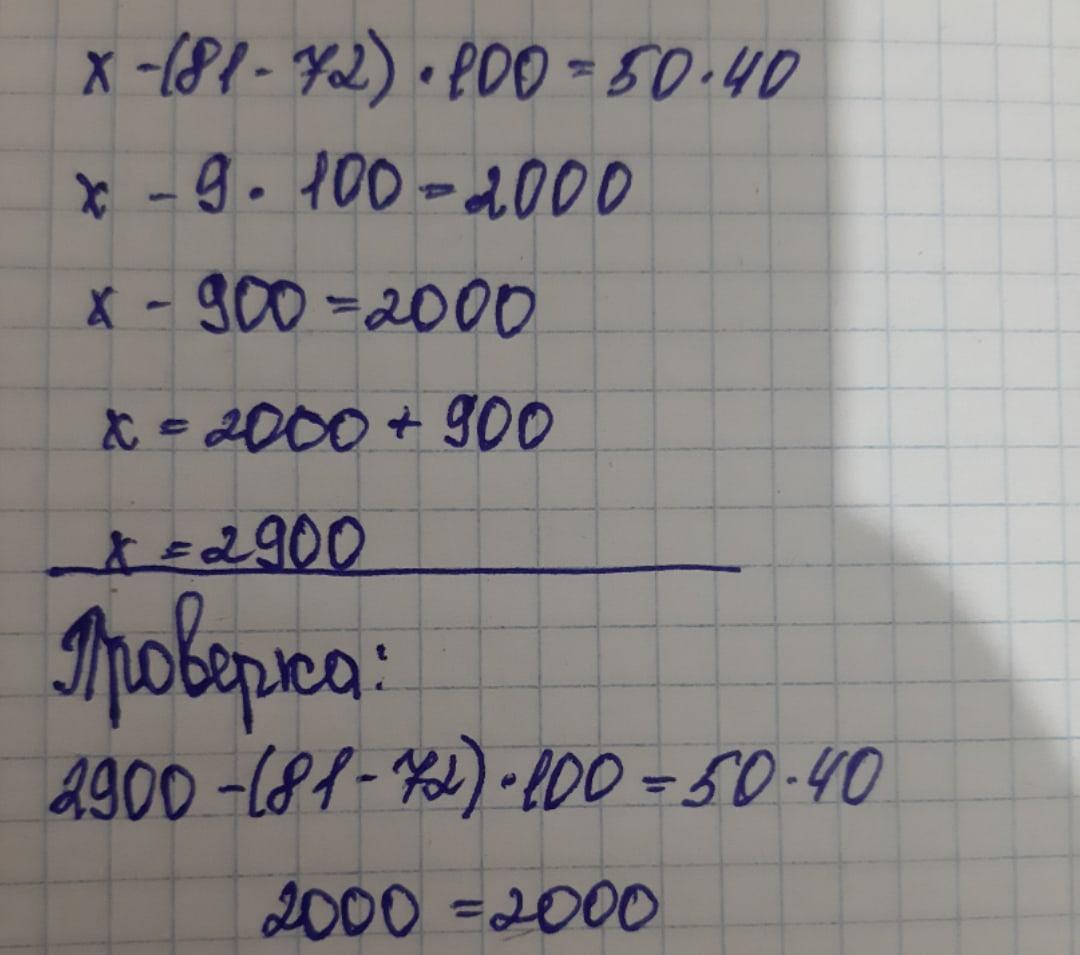 x - (81 - 72) · 100 = 50 · 40
x - 9 · 100 = 2000
x - 900 = 2000
x = 2000 + 900
x = 2900
Проверка:
2900 - (81 - 72) · 100 = 50 · 40
2000 = 2000